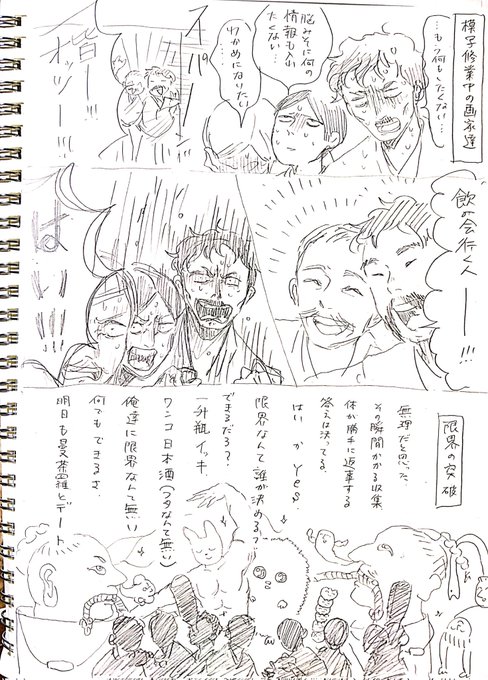 模写修業中の画家達
…もう何もしたくない…
脳みそに何の
情報も入れ
たくない…
…わかめになりたい…
バーン
皆ーー!!
オッツーー!!!
飲み会行く人
ーーー!!!
はーい!!!!
限界の突破
無理だと思った
その瞬間かかる収集
体が勝手に返事する
答えは決ってる。
はい か Yes.
限界なんて誰が決める?
できるだろ?
一升瓶イッキ
ワンコ日本酒(フタなんて無い)
俺達に限界なんて無い
何でもできるさ
明日も曼荼羅とデート